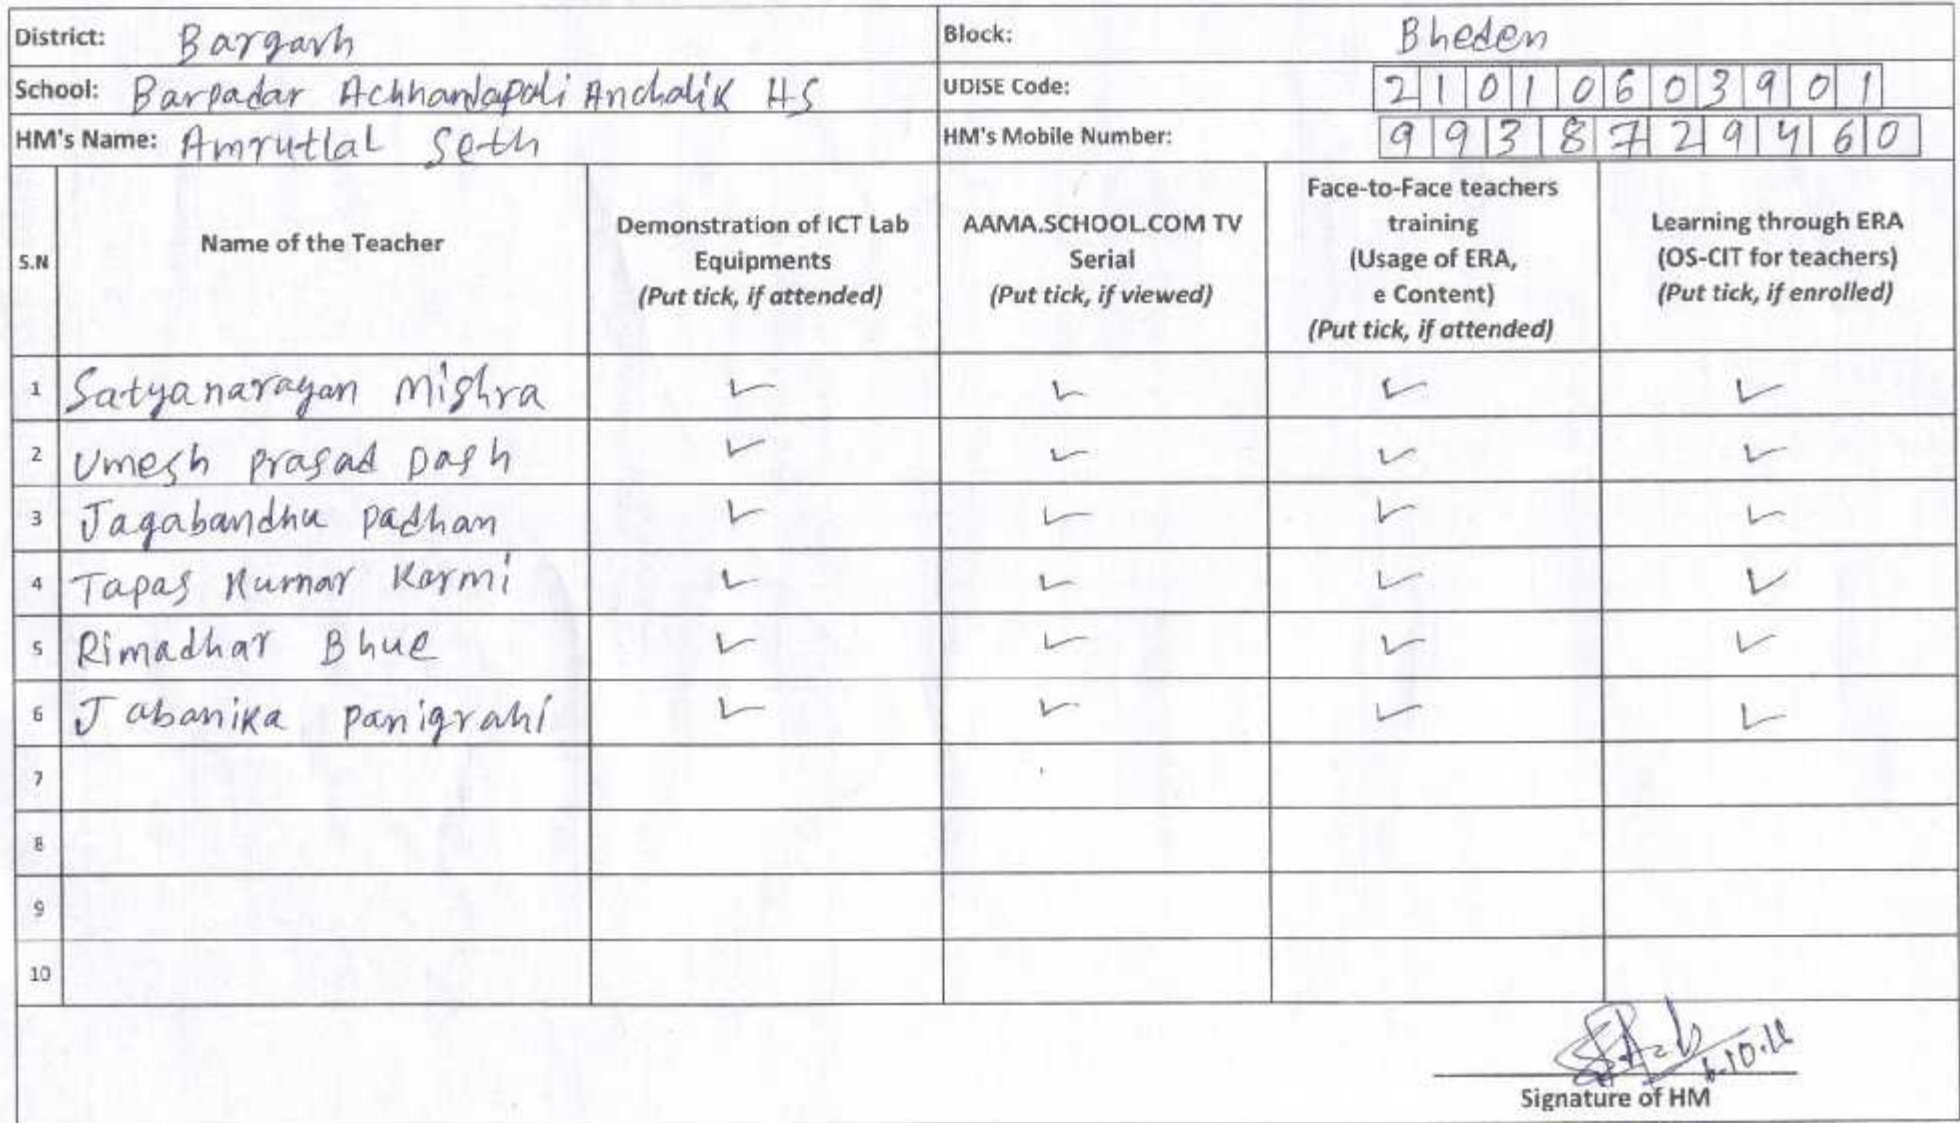 District: Bargarh Block: Bheden
School: Barpadar Achhandapali Anchalik HS UDISE Code: 21010603901
HM's Name: Amrutlal Seth HM's Mobile Number: 9938729460
S.N Name of the Teacher Demonstration of ICT Lab Equipments (Put tick, if attended) AAMA.SCHOOL.COM TV Serial (Put tick, if viewed) Face-to-Face teachers training (Usage of ERA, e Content) (Put tick, if attended) Learning through ERA (OS-CIT for teachers) (Put tick, if enrolled)
1 Satyanarayan Mishra ✓ ✓ ✓ ✓
2 Umesh prasad Dash ✓ ✓ ✓ ✓
3 Jagabandhu Padhan ✓ ✓ ✓ ✓
4 Tapas Kumar Karmi ✓ ✓ ✓ ✓
5 Rimadhar Bhue ✓ ✓ ✓ ✓
6 Jabanika panigrahi ✓ ✓ ✓ ✓
7
8
9
10
Signature of HM